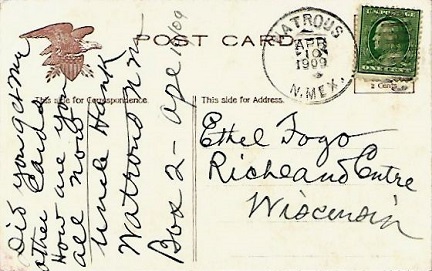 POST CARD
WATROUS
APR
10
1909
N.MEX.
This side for Correspondence.
This side for Address.
Did you get my
other Cards
How are you
all now
Uncle Hank
Watrous N M
Box 2 -
Ethel Fogo
Richland Centre
Wisconsin